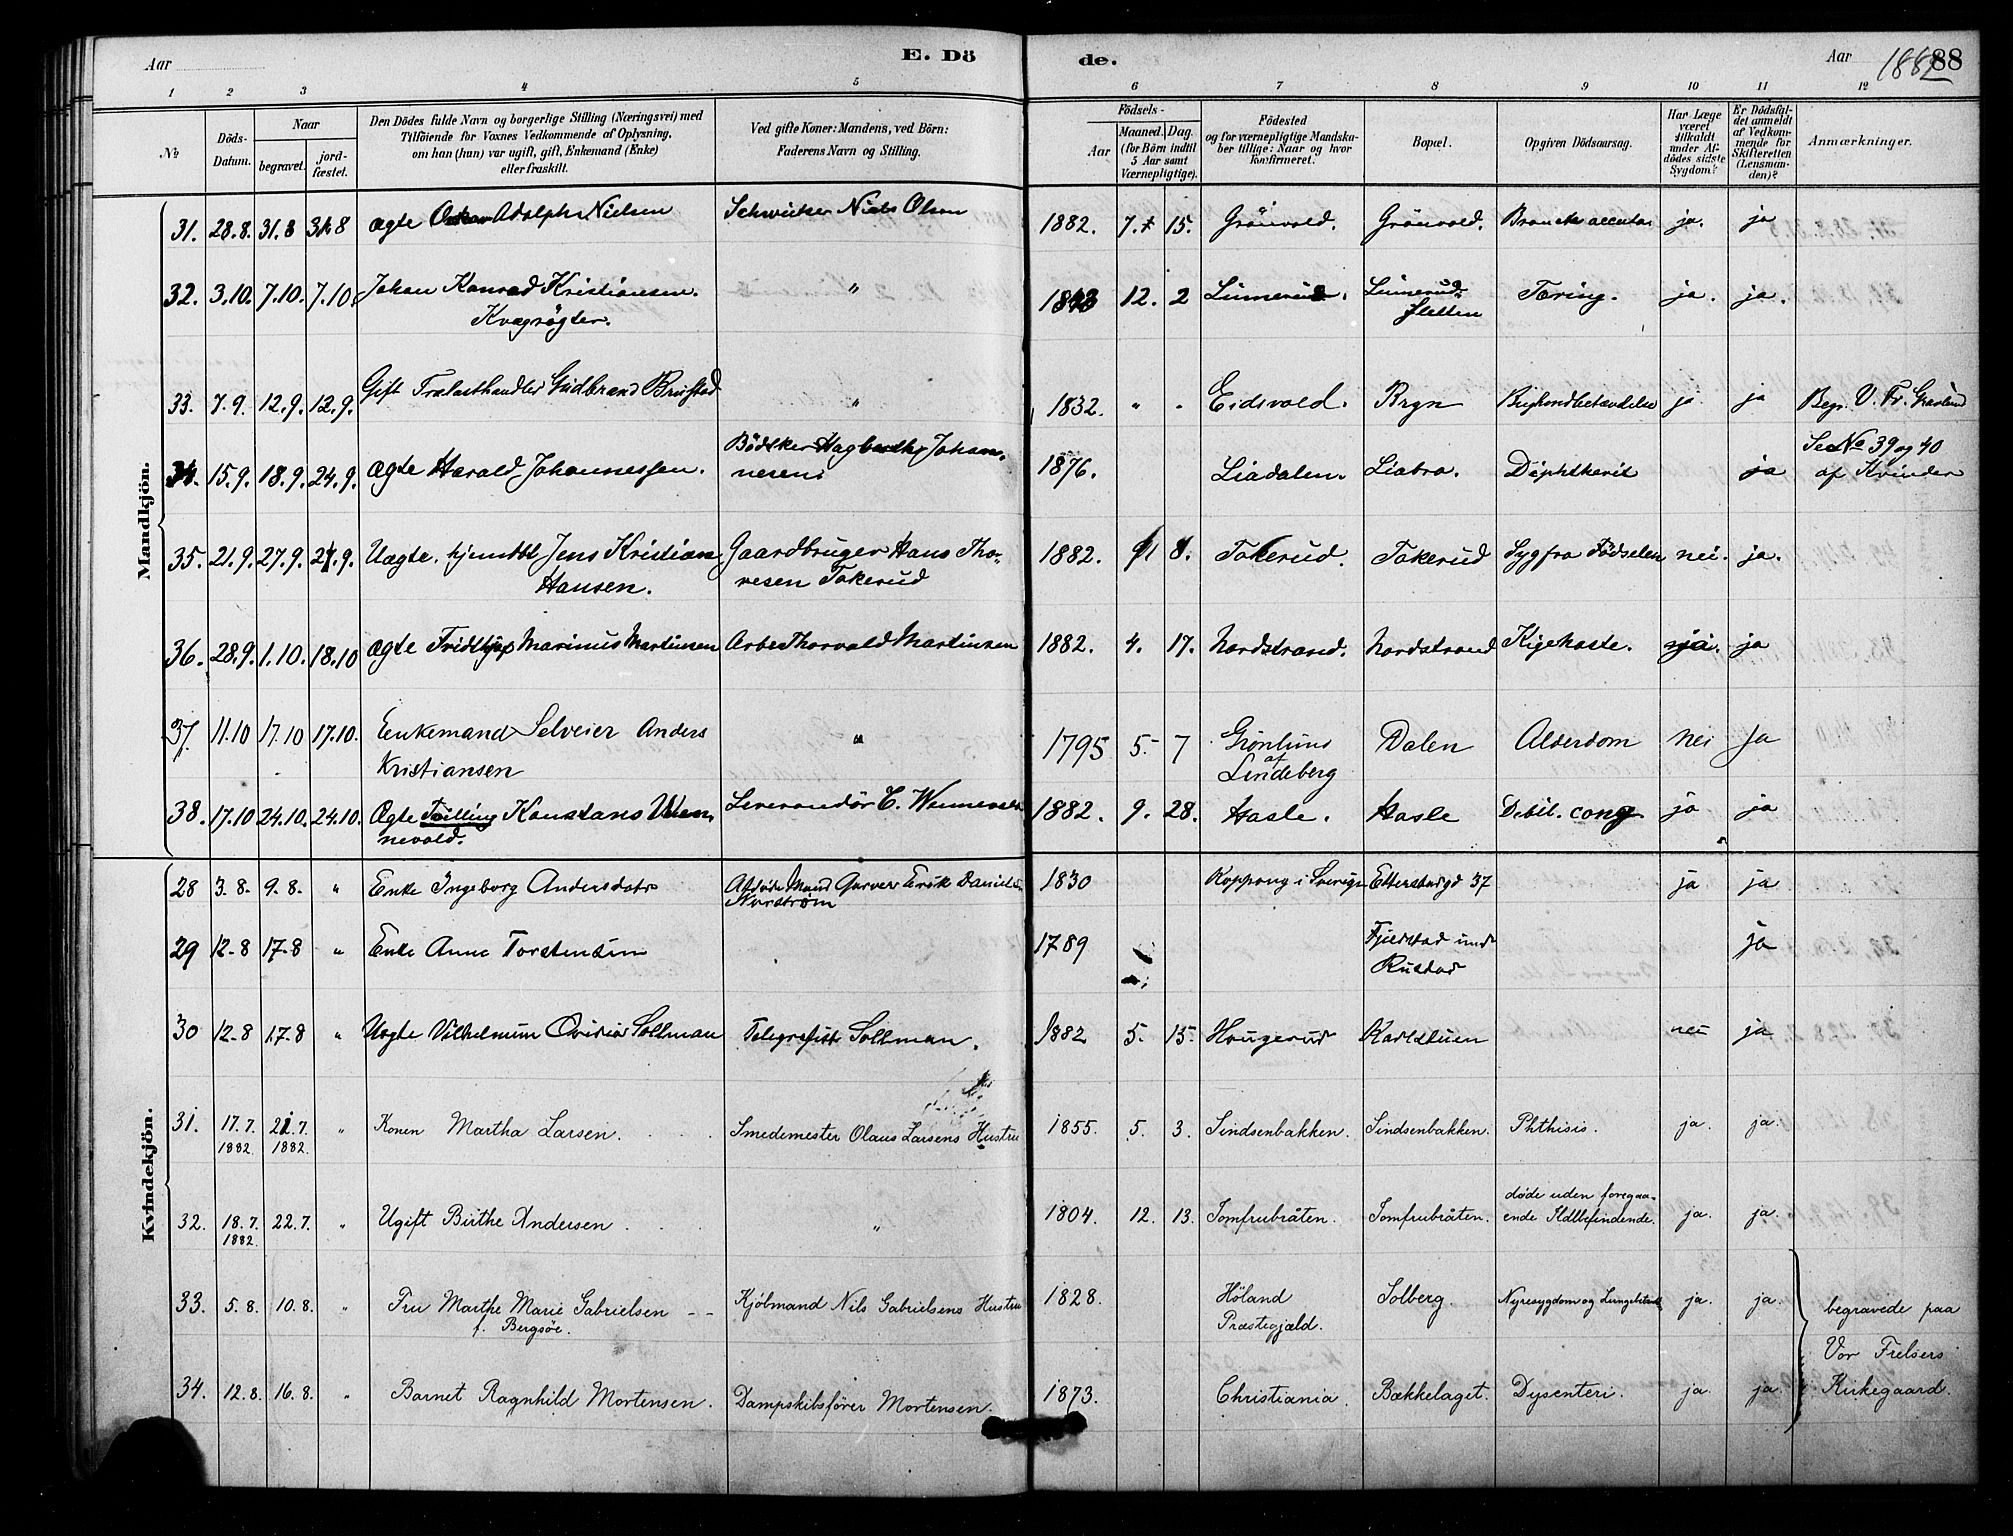 Aar
E. Dö
de.
Aar 1882 88
1 2 3 4 5 6 7 8 9 10 11 12
No
Döds-
Datum.
Naar
begravet.
jord-
fæstet.
Den Dödes fulde Navn og borgerlige Stilling (Næringsvei) med
Tilföiende for Voxnes Vedkommende af Oplysning,
om han (hun) var ugift, gift, Enkemand (Enke)
eller fraskilt.
Ved gifte Koner: Mandens, ved Börn:
Faderens Navn og Stilling.
Födsels-
Aar
Maaned. Dag.
(for Börn indtil
5 Aar samt
Værnepligtige).
Födested
og for værnepligtige Mandska-
ber tillige: Naar og hvor
Konfirmeret.
Bopæl.
Opgiven Dödsaarsag.
Har Læge
været
tilkaldt
under Af-
dödes sidste
Sygdom?
Er Dödsfal-
det anmeldt
af Vedkom-
mende for
Skifteretten
(Lensman-
den)?
Anmærkninger.
Mandkjön.
31. 28.8. 31.8 31.8 ægte Oskar Adolph Nielsen Schweitser Niels Olsen 1882. 7. 15. Grönvold. Grönvold. ja. ja
32. 3.10. 7.10. 7.10. Johan Konrad Kristiansen. " 12. 2 Linnerud. Linnerud- Tæring. ja. ja.
Kvægrögter. sletten
33. 7.9. 12.9. 12.9. Gift Trælasthandler Gudbrand Brustad " 1832. " " Eidsvold. Bryn Brysthindebetændelse ja ja Begr. V. Fr. Gravlund
34. 15.9. 18.9. 24.9. ægte Harald Johannessen. Bödsker Hagbarth Johan-
nesen. 1876. Liadalen. Liabro. Diphtherit ja Se No 39 og 40
af Kvinder
35. 21.9. 27.9. 27.9. Uægte, hjemdbt Jens Kristian Gaardbruger Hans Tho- 1882. 8. Tokerud. Tokerud Syg fra Fødselen nei. ja.
Hansen. resen Tokerud
36. 28.9. 1.10. 18.10 ægte Fridthjof Marinus Martinsen Arb. Thorvald Martinsen 1882. 4. 17. Nordstrand. Nordstrand Kighoste. ja. ja
37. 11.10 17.10 17.10. Enkemand Selveier Anders " 1795 5. 7 Grönlund Dalen Alderdom nei Ja
Kristiansen af
Lindeberg
38. 17.10 24.10. 24.10. Ægte Tvilling Konstans Wen-
nevold. Leverandör C. Wennevold 1882. 9. 28. Hasle. Hasle Debil. cong. ja ja
Kvindekjön.
28 3.8. 9.8. " Enke Ingeborg Andersdatr Afdöde Mand Garver Erik Daniels. 1830 Koppang i Sverige Etterstadgd 37 ja ja
Norström
29 12-8 17-8 " Enke Anne Torstensen 1789 Fjeldstad under ja
Rustad
30 12-8 17-8 " Uægte Vilhelmine Ovidia Sollman Telegrafist Sollman. 1882 5. 15. Hougerud Karlstuen nei ja
31. 17.7. 21.7. " Konen Martha Larsen. Smedemester Olaus Larsens Hustru 1855. 5. 3. Sindsenbakken. Sindsenbakken. Phthisis. ja. ja.
1882. 1882.
32. 18.7. 22.7. " Ugift Birthe Andersen " 1804. 12. 13. Jomfrubråten. Jomfrubråten. døde uden foregaa-
ende Ildebefindende. ja. ja.
1882.
33. 5.8. 10.8. " Fru Marthe Marie Gabrielsen -- Kjöbmand Nils Gabrielsens Hustru 1828. Höland Solberg. Nyresygdom og Lungebetænd. ja. ja.
f. Bergsöe. Præstegjæld.
34. 12.8. 16.8. " Barnet Ragnhild Mortensen. Dampskibsfører Mortensen. 1873. Christiania. Bækkelaget. Dysenteri. ja. ja.
begravede paa
Vor Frelsers
Kirkegaard.